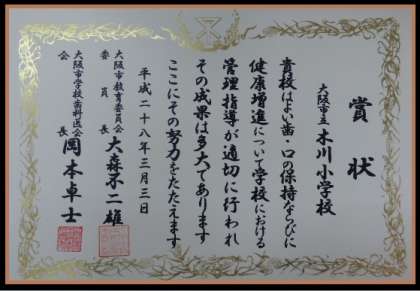 賞状
大阪市立 木川小学校
貴校はよい歯・口の保持ならびに
健康増進について学校における
管理指導が適切に行われ
その成果は多大であります
ここにその努力をたたえます
平成二十八年三月三日
大阪市教育委員会
委員長 大森不二雄
大阪市学校歯科医会
会長 岡本卓士